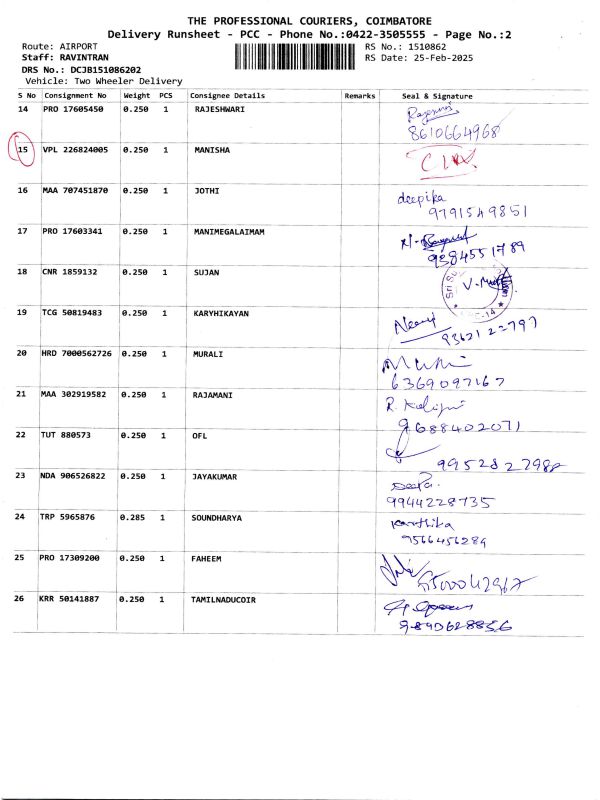 THE PROFESSIONAL COURIERS, COIMBATORE
Delivery Runsheet - PCC - Phone No.:0422-3505555 - Page No.:2
Route: AIRPORT RS No.: 1510862
Staff: RAVINTRAN RS Date: 25-Feb-2025
DRS No.: DCJB151086202
Vehicle: Two Wheeler Delivery
S No Consignment No Weight PCS Consignee Details Remarks Seal & Signature
14 PRO 17605450 0.250 1 RAJESHWARI
8610664968
15 VPL 226824005 0.250 1 MANISHA
16 MAA 707451870 0.250 1 JOTHI deepika
9791549851
17 PRO 17603341 0.250 1 MANIMEGALAIMAM
9384551789
18 CNR 1859132 0.250 1 SUJAN
19 TCG 50819483 0.250 1 KARYHIKAYAN
9362122797
20 HRD 7000562726 0.250 1 MURALI
6369097167
21 MAA 302919582 0.250 1 RAJAMANI
9688402071
22 TUT 880573 0.250 1 OFL
9952827988
23 NDA 906526822 0.250 1 JAYAKUMAR Deepa.
9944228735
24 TRP 5965876 0.285 1 SOUNDHARYA Karthika
9566456289
25 PRO 17309200 0.250 1 FAHEEM
26 KRR 50141887 0.250 1 TAMILNADUCOIR